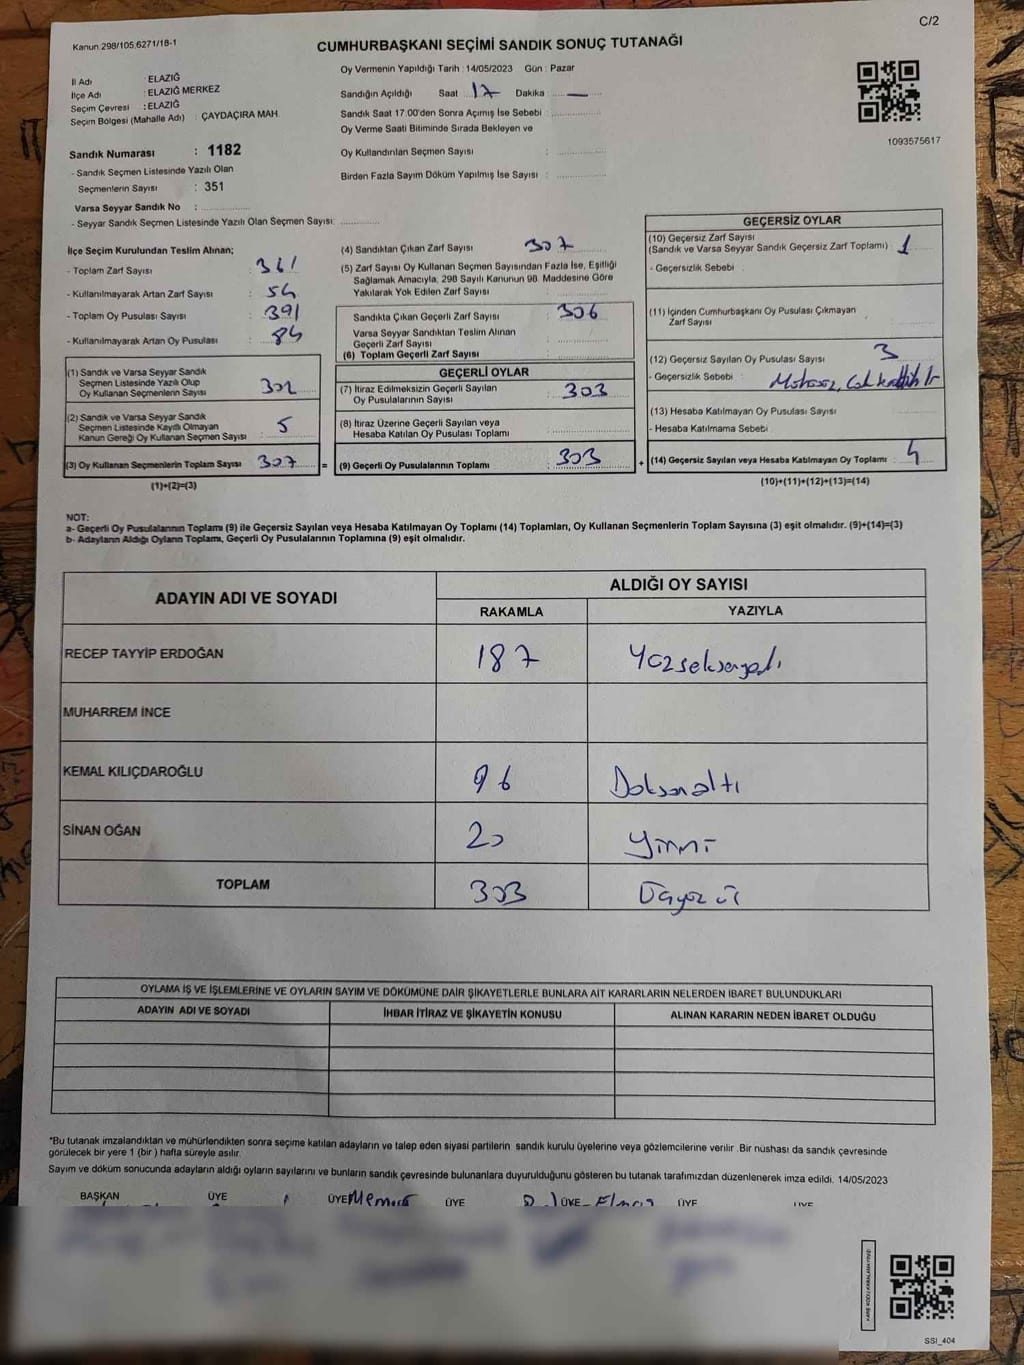 C/2
Kanun 298/105,6271/18-1
CUMHURBAŞKANI SEÇİMİ SANDIK SONUÇ TUTANAĞI
İl Adı : ELAZIĞ
İlçe Adı : ELAZIĞ MERKEZ
Seçim Çevresi : ELAZIĞ
Seçim Bölgesi (Mahalle Adı) : ÇAYDAÇIRA MAH.
Sandık Numarası : 1182
- Sandık Seçmen Listesinde Yazılı Olan
Seçmenlerin Sayısı : 351
Varsa Seyyar Sandık No :
- Seyyar Sandık Seçmen Listesinde Yazılı Olan Seçmen Sayısı:
Oy Vermenin Yapıldığı Tarih : 14/05/2023 Gün : Pazar
Sandığın Açıldığı Saat : 17 Dakika : —
Sandık Saat 17.00'den Sonra Açımış İse Sebebi :
Oy Verme Saati Bitiminde Sırada Bekleyen ve
Oy Kullandırılan Seçmen Sayısı :
Birden Fazla Sayım Döküm Yapılmış İse Sayısı :
1093575617
İlçe Seçim Kurulundan Teslim Alınan;
- Toplam Zarf Sayısı : 361
- Kullanılmayarak Artan Zarf Sayısı : 54
- Toplam Oy Pusulası Sayısı : 391
- Kullanılmayarak Artan Oy Pusulası : 84
(1) Sandık ve Varsa Seyyar Sandık
Seçmen Listesinde Yazılı Olup
Oy Kullanan Seçmenlerin Sayısı : 302
(2) Sandık ve Varsa Seyyar Sandık
Seçmen Listesinde Kayıtlı Olmayan
Kanun Gereği Oy Kullanan Seçmen Sayısı : 5
(3) Oy Kullanan Seçmenlerin Toplam Sayısı : 307 =
(1)+(2)=(3)
(4) Sandıktan Çıkan Zarf Sayısı : 307
(5) Zarf Sayısı Oy Kullanan Seçmen Sayısından Fazla İse, Eşitliği
Sağlamak Amacıyla, 298 Sayılı Kanunun 98. Maddesine Göre
Yakılarak Yok Edilen Zarf Sayısı :
Sandıkta Çıkan Geçerli Zarf Sayısı : 306
Varsa Seyyar Sandıktan Teslim Alınan
Geçerli Zarf Sayısı :
(6) Toplam Geçerli Zarf Sayısı :
GEÇERLİ OYLAR
(7) İtiraz Edilmeksizin Geçerli Sayılan
Oy Pusulalarının Sayısı : 303
(8) İtiraz Üzerine Geçerli Sayılan veya
Hesaba Katılan Oy Pusulası Toplamı :
(9) Geçerli Oy Pusulalarının Toplamı : 303 +
GEÇERSİZ OYLAR
(10) Geçersiz Zarf Sayısı
(Sandık ve Varsa Seyyar Sandık Geçersiz Zarf Toplamı) : 1
- Geçersizlik Sebebi :
(11) İçinden Cumhurbaşkanı Oy Pusulası Çıkmayan
Zarf Sayısı :
(12) Geçersiz Sayılan Oy Pusulası Sayısı : 3
- Geçersizlik Sebebi :
(13) Hesaba Katılmayan Oy Pusulası Sayısı :
- Hesaba Katılmama Sebebi :
(14) Geçersiz Sayılan veya Hesaba Katılmayan Oy Toplamı : 4
(10)+(11)+(12)+(13)=(14)
NOT:
a- Geçerli Oy Pusulalarının Toplamı (9) ile Geçersiz Sayılan veya Hesaba Katılmayan Oy Toplamı (14) Toplamları, Oy Kullanan Seçmenlerin Toplam Sayısına (3) eşit olmalıdır. (9)+(14)=(3)
b- Adayların Aldığı Oyların Toplamı, Geçerli Oy Pusulalarının Toplamına (9) eşit olmalıdır.
ADAYIN ADI VE SOYADI
ALDIĞI OY SAYISI
RAKAMLA YAZIYLA
RECEP TAYYİP ERDOĞAN 187 Yüzseksenyedi
MUHARREM İNCE
KEMAL KILIÇDAROĞLU 96 Doksanaltı
SİNAN OĞAN 20 Yirmi
TOPLAM 303 Üçyüz üç
OYLAMA İŞ VE İŞLEMLERİNE VE OYLARIN SAYIM VE DÖKÜMÜNE DAİR ŞİKAYETLERLE BUNLARA AİT KARARLARIN NELERDEN İBARET BULUNDUKLARI
ADAYIN ADI VE SOYADI İHBAR İTİRAZ VE ŞİKAYETİN KONUSU ALINAN KARARIN NEDEN İBARET OLDUĞU
*Bu tutanak imzalandıktan ve mühürlendikten sonra seçime katılan adayların ve talep eden siyasi partilerin sandık kurulu üyelerine veya gözlemcilerine verilir. Bir nüshası da sandık çevresinde
görülecek bir yere 1 (bir) hafta süreyle asılır.
Sayım ve döküm sonucunda adayların aldığı oyların sayılarını ve bunların sandık çevresinde bulunanlara duyurulduğunu gösteren bu tutanak tarafımızdan düzenlenerek imza edildi. 14/05/2023
BAŞKAN ÜYE ÜYE ÜYE ÜYE ÜYE ÜYE
SSI_404